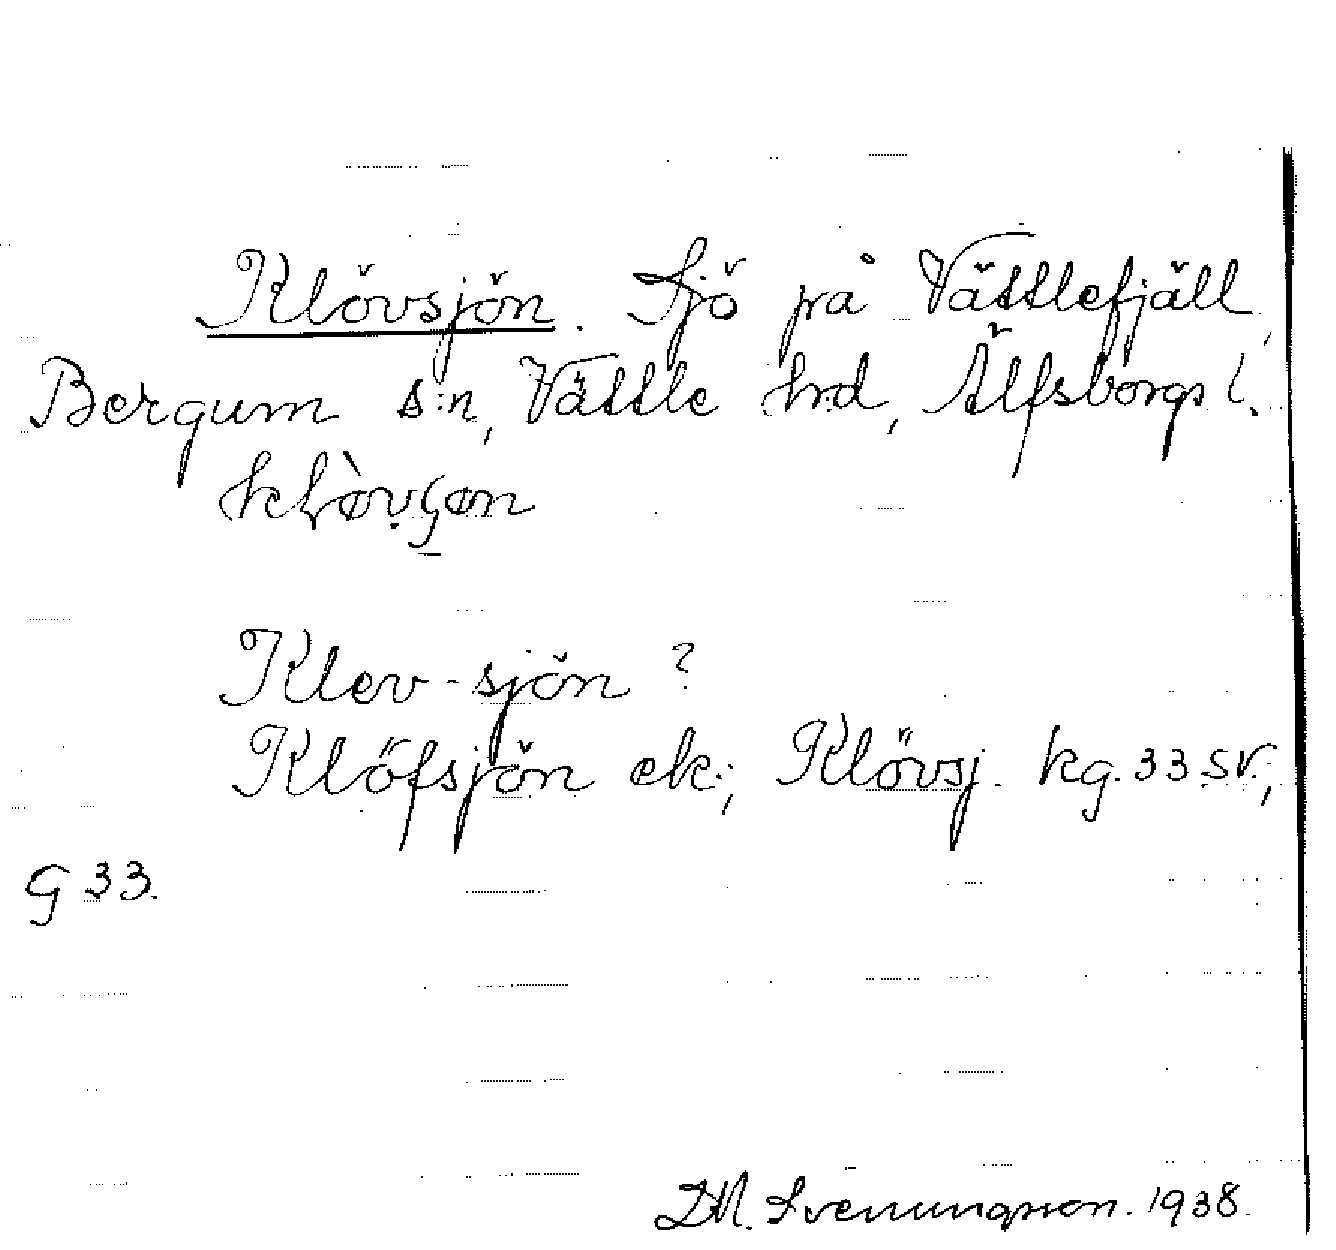 Klövsjön. Sjö på Vättlefjäll,
Bergum s:n, Vättle hrd, Älfsborgs l.
Klev-sjön ?
Klöfsjön ek.; Klövsj. kg. 33 SV;
G 33.
D.M. Svenungsson. 1938.